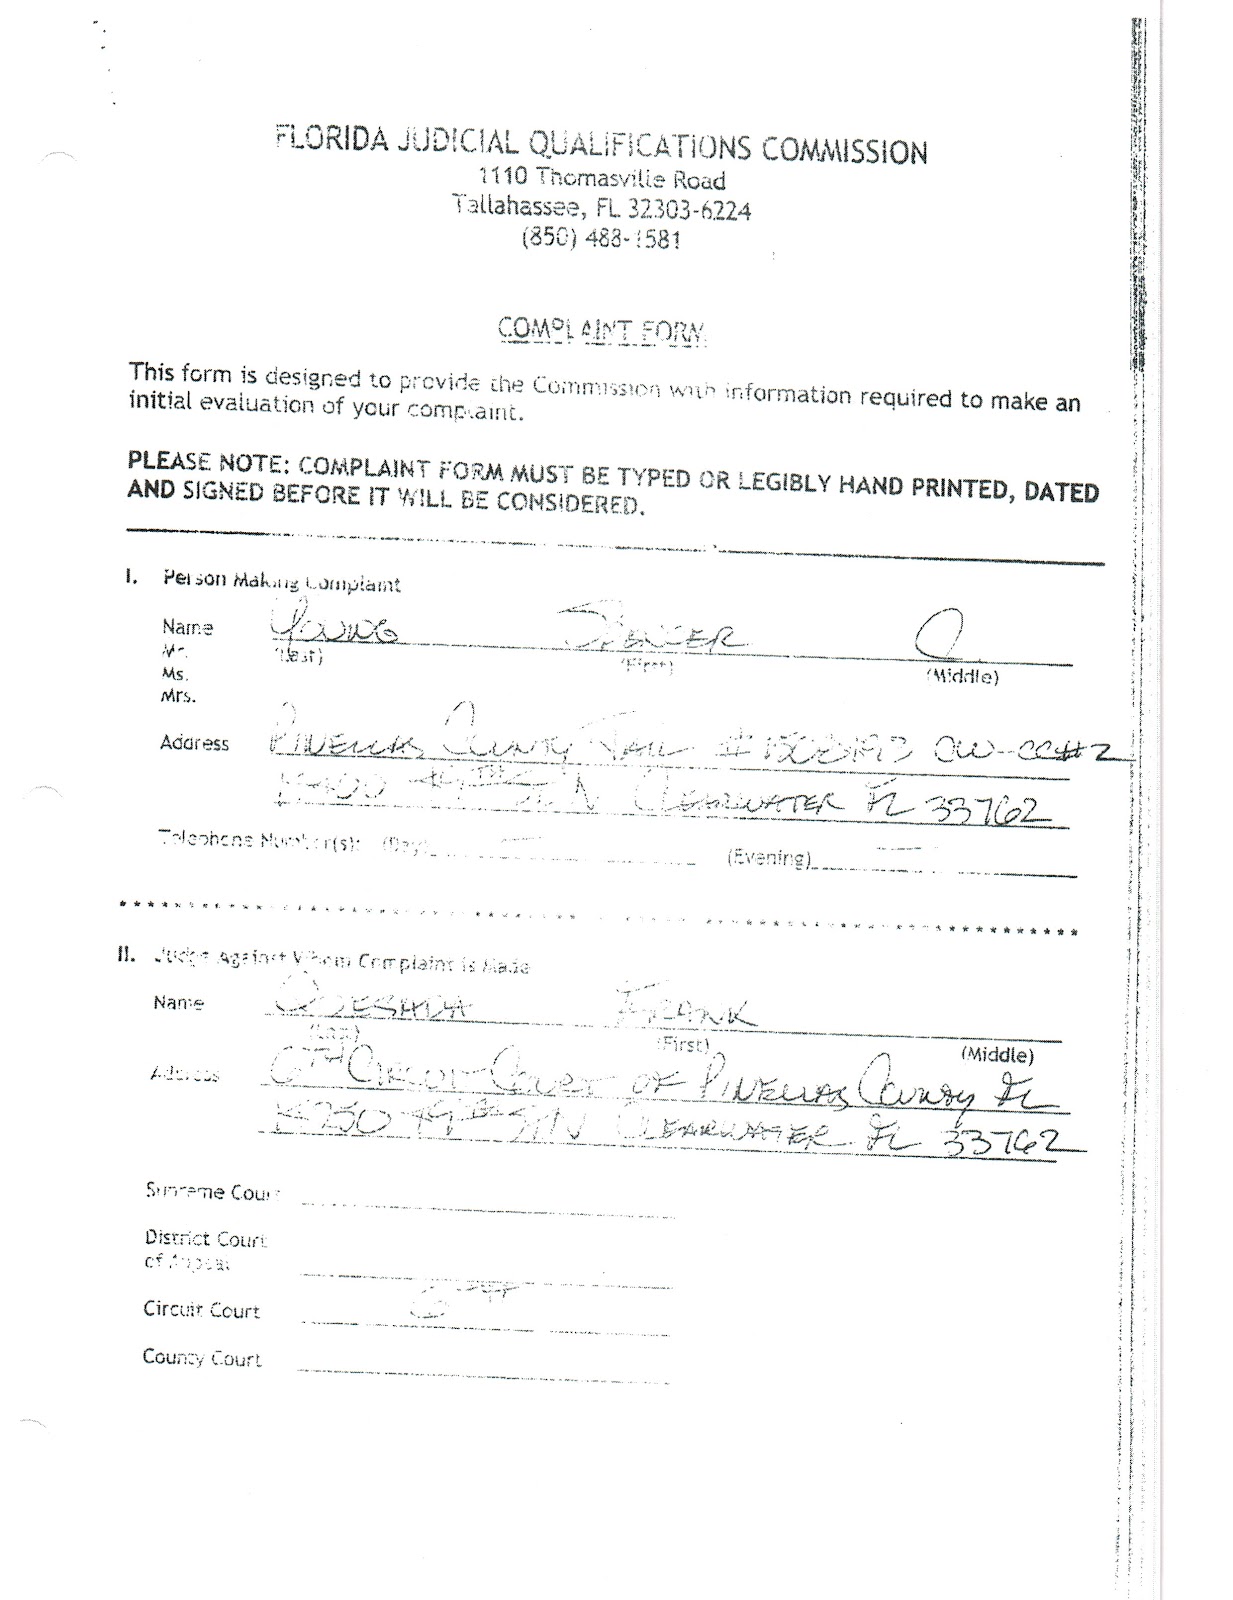 FLORIDA JUDICIAL QUALIFICATIONS COMMISSION
1110 Thomasville Road
Tallahassee, FL 32303-6224
(850) 488-1581
COMPLAINT FORM
This form is designed to provide the Commission with information required to make an
initial evaluation of your complaint.
PLEASE NOTE: COMPLAINT FORM MUST BE TYPED OR LEGIBLY HAND PRINTED, DATED
AND SIGNED BEFORE IT WILL BE CONSIDERED.
I. Person Making Complaint
Name YOUNG SPENCER C
Mr. (Last) (First) (Middle)
Ms.
Mrs.
Address PINELLAS COUNTY JAIL CW-CC#2
14400 49TH ST N CLEARWATER FL 33762
Telephone Number(s): (Day) (Evening)
II. Judge Against Whom Complaint is Made
Name QUESADA FRANK
(Last) (First) (Middle)
Address 6TH CIRCUIT COURT OF PINELLAS COUNTY FL
14250 49TH ST N CLEARWATER FL 33762
Supreme Court
District Court
of Appeal
Circuit Court 6TH
County Court